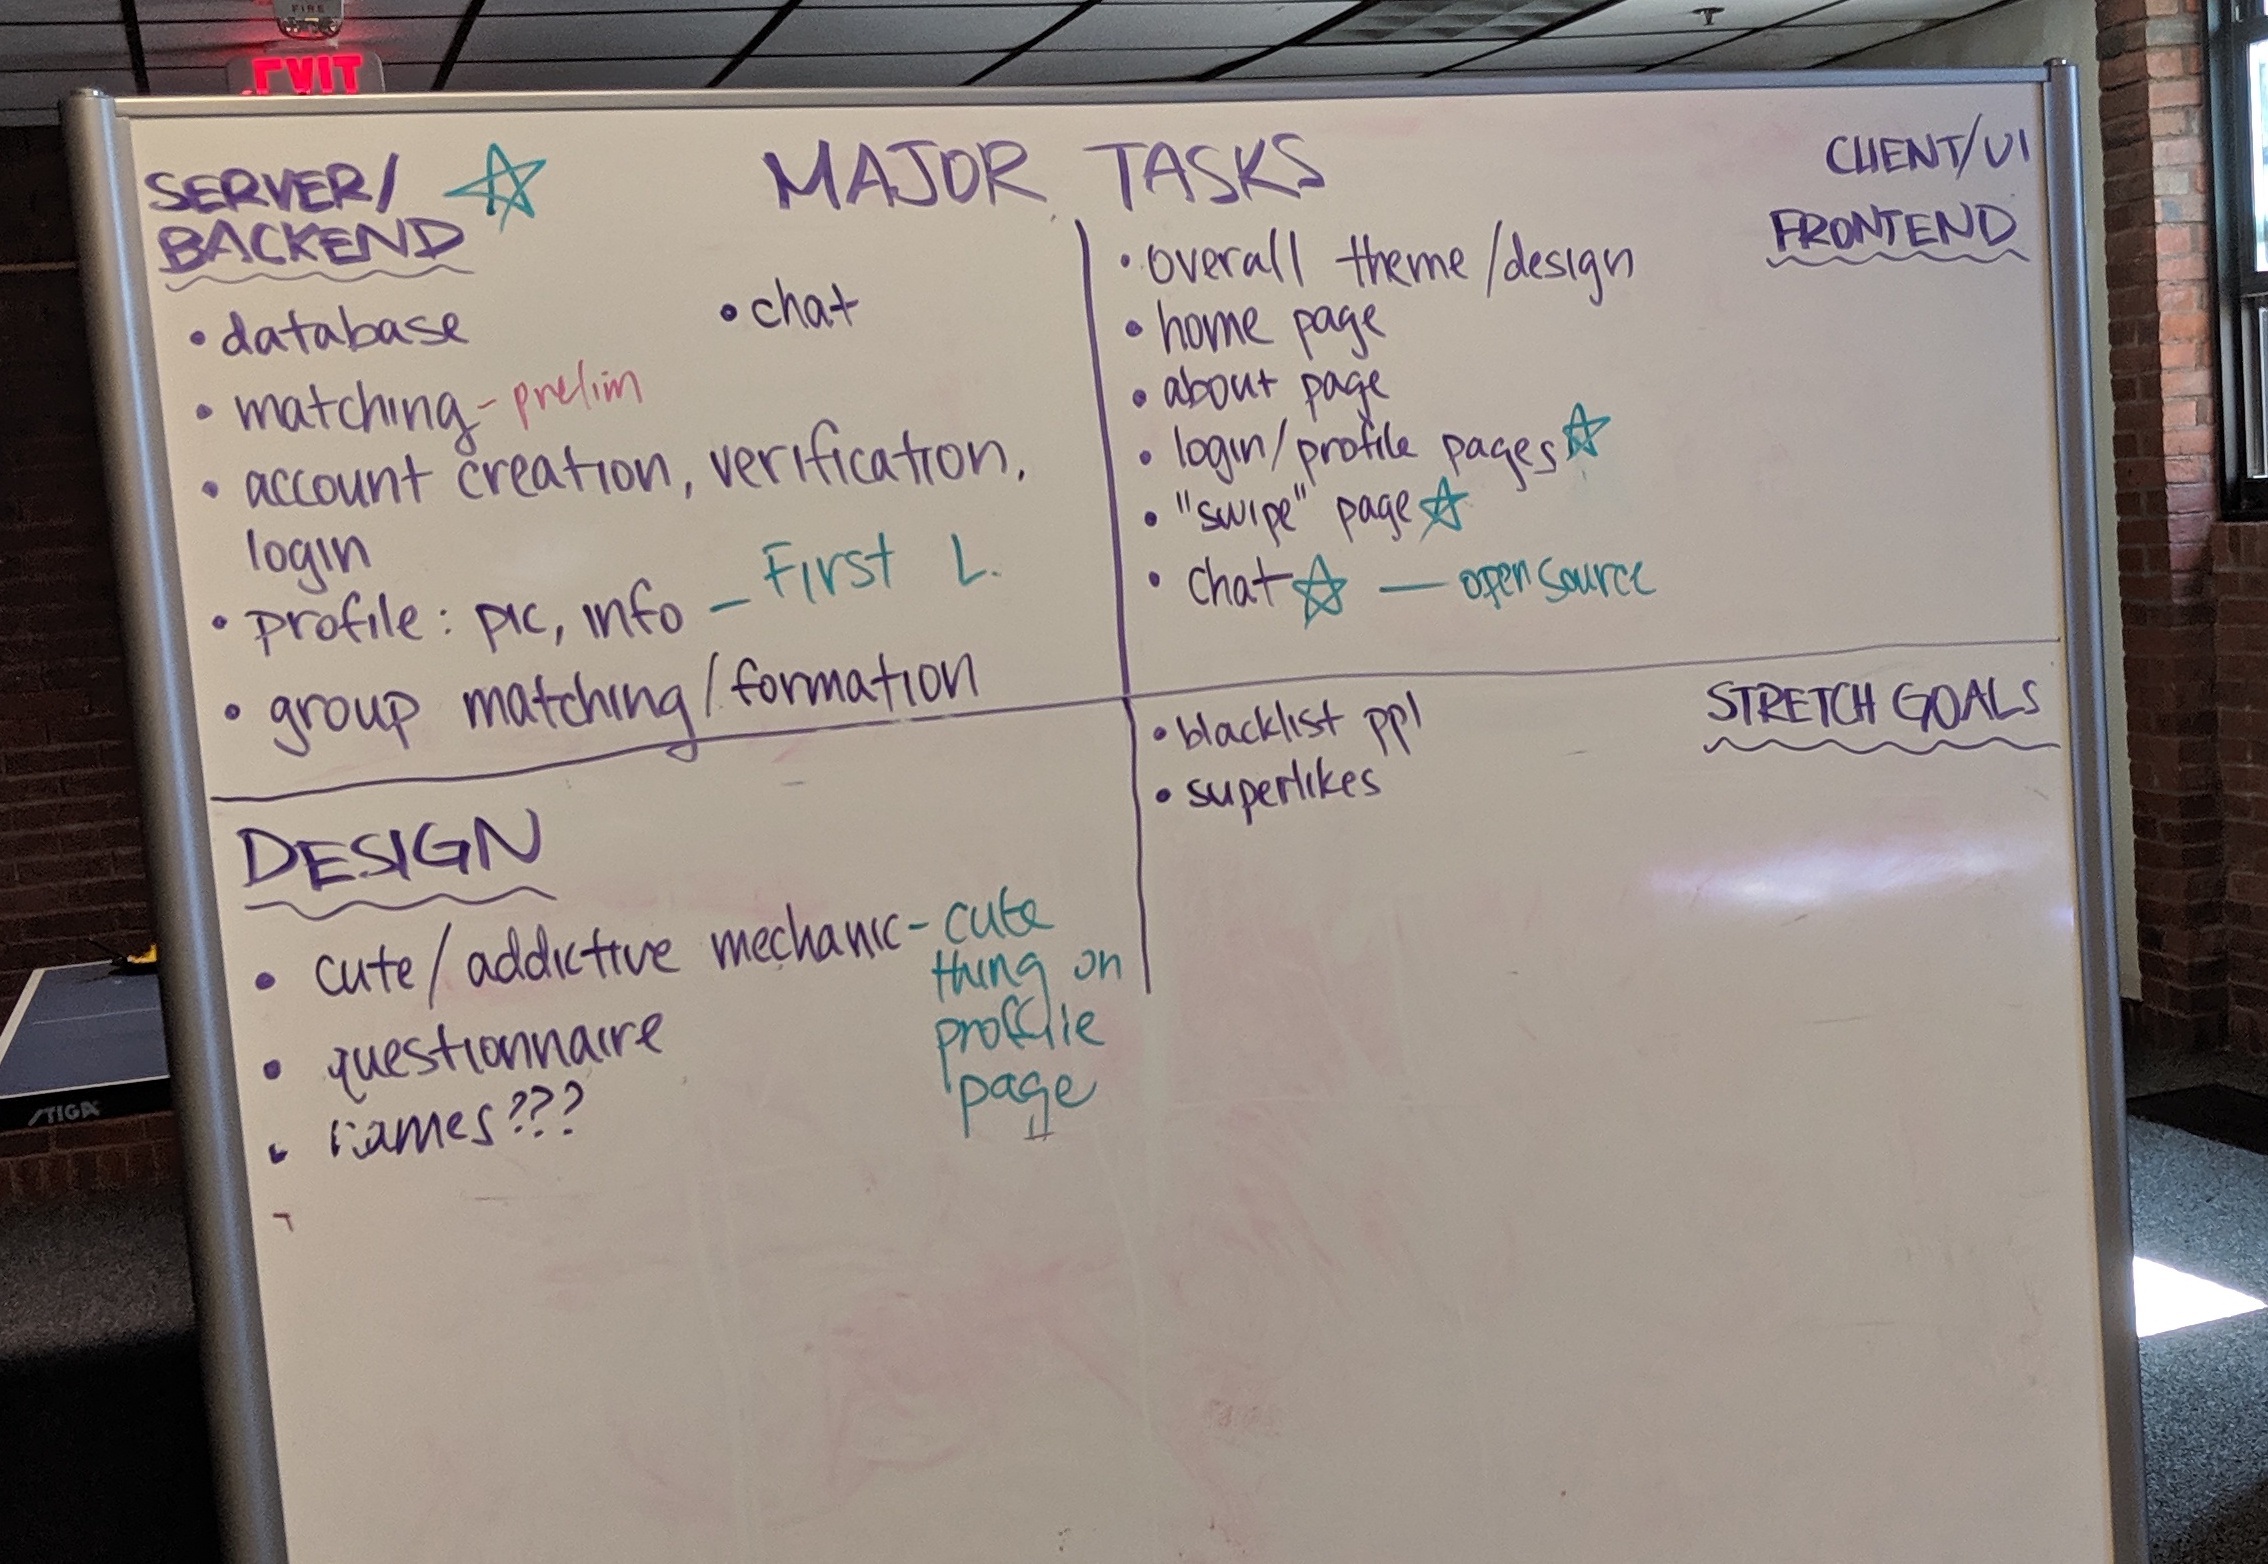 FIRE
EXIT
MAJOR TASKS
SERVER/
BACKEND
• database
• matching - prelim
• account creation, verification,
login
• profile: pic, info - First L.
• group matching/formation
• chat
CLIENT/UI
FRONTEND
• overall theme/design
• home page
• about page
• login/profile pages
• "swipe" page
• chat — open source
DESIGN
• cute/addictive mechanic - cute
thing on
proffile
page
• questionnaire
• names???
STRETCH GOALS
• blacklist ppl
• superlikes
STIGA